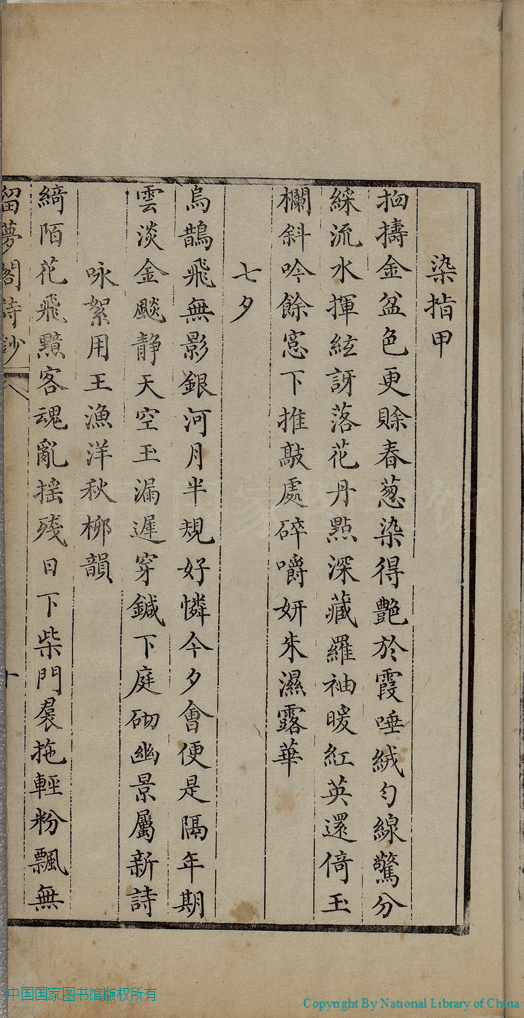 染指甲
拁擣金盆色更賒春葱染得艷於霞唾絨勻線驚分
綵流水揮絃訝落花丹點深藏羅袖暖紅英還倚玉
欄斜吟餘窓下推敲處碎嚼妍朱濕露華
七夕
烏鵲飛無影銀河月半規好憐今夕會便是隔年期
雲淡金颷静天空玉漏遲穿鍼下庭砌幽景屬新詩
咏絮用王漁洋秋柳韻
綺陌花飛黯客魂亂摇殘日下柴門裠拖輕粉飄無
留夢閣詩鈔
十
中国国家图书馆版权所有
Copyright By National Library of China